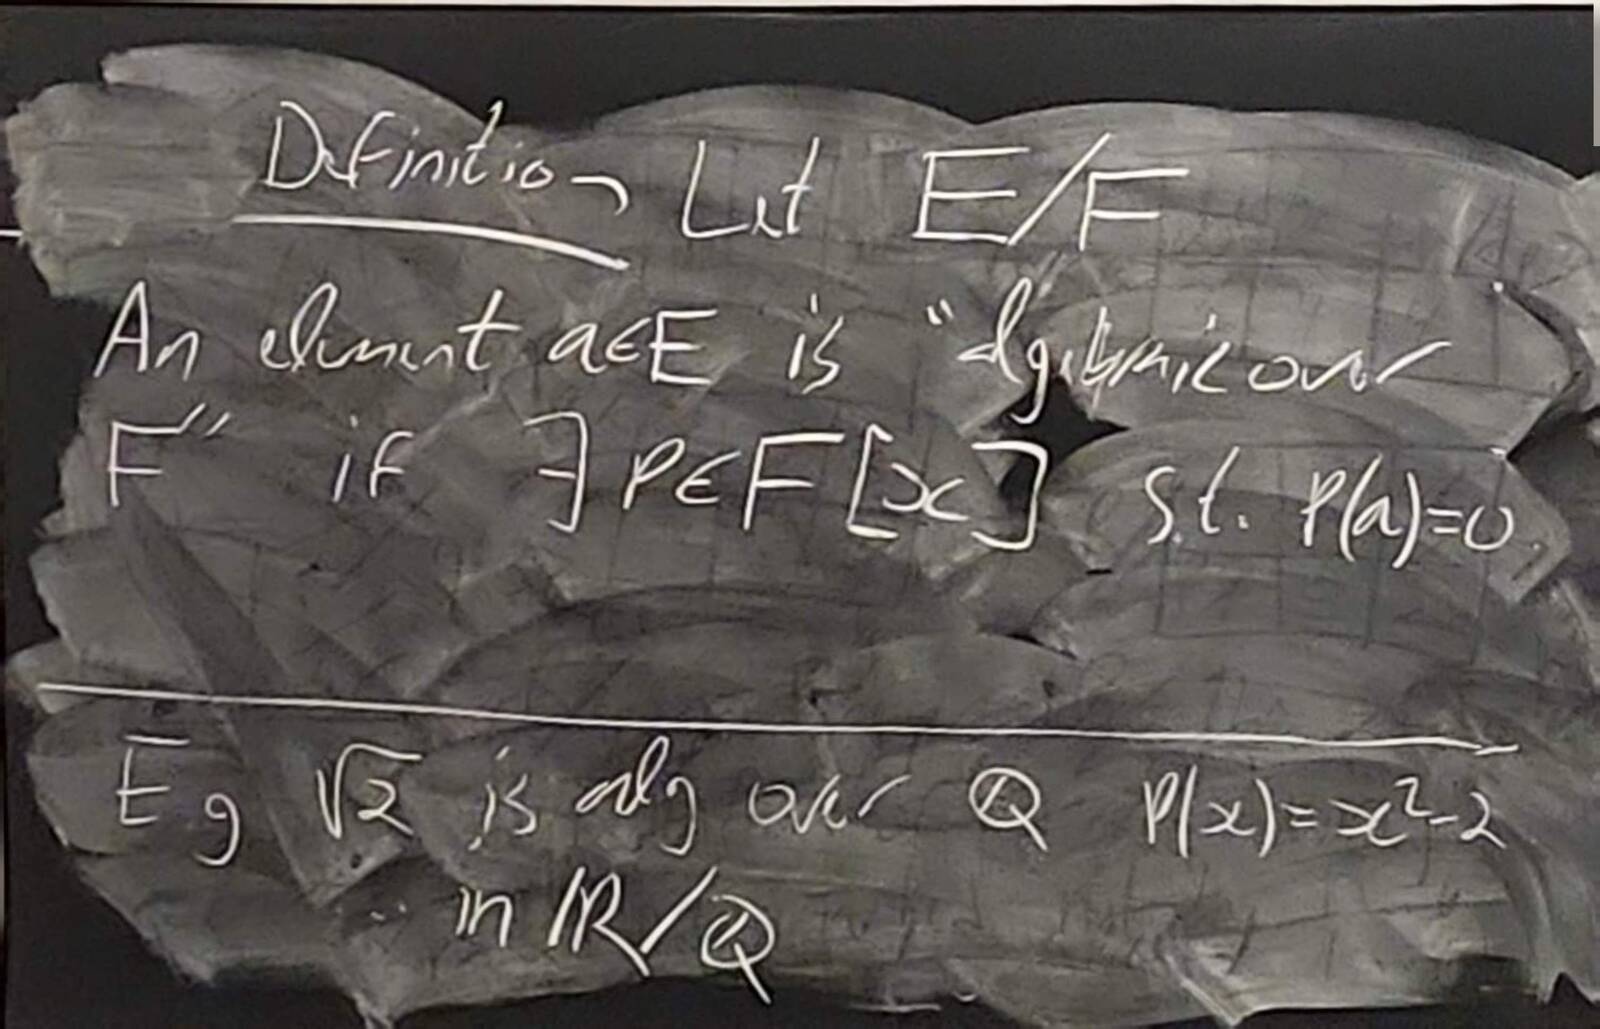 Definition Let E/F
An element a∈E is "algebraic over
F" if ∃ P∈F[x] s.t. P(a)=0.
Eg √2 is alg over ℚ P(x)=x²-2
in ℝ/ℚ